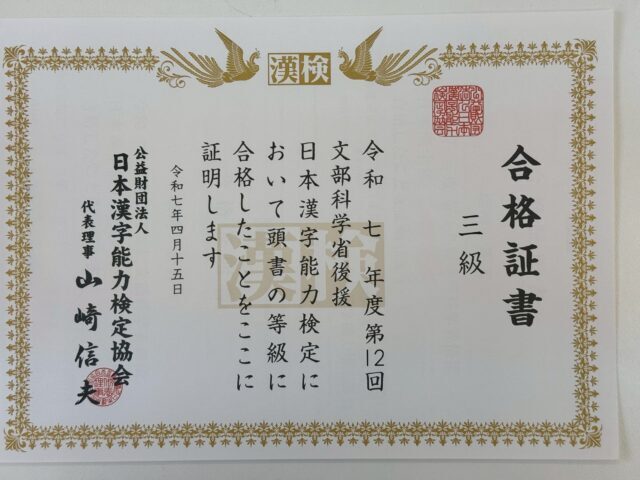 漢検
合格証書
三級
令和七年度第12回
文部科学省後援
日本漢字能力検定に
おいて頭書の等級に
合格したことをここに
証明します
令和七年四月十五日
公益財団法人
日本漢字能力検定協会
代表理事 山崎信夫
漢検